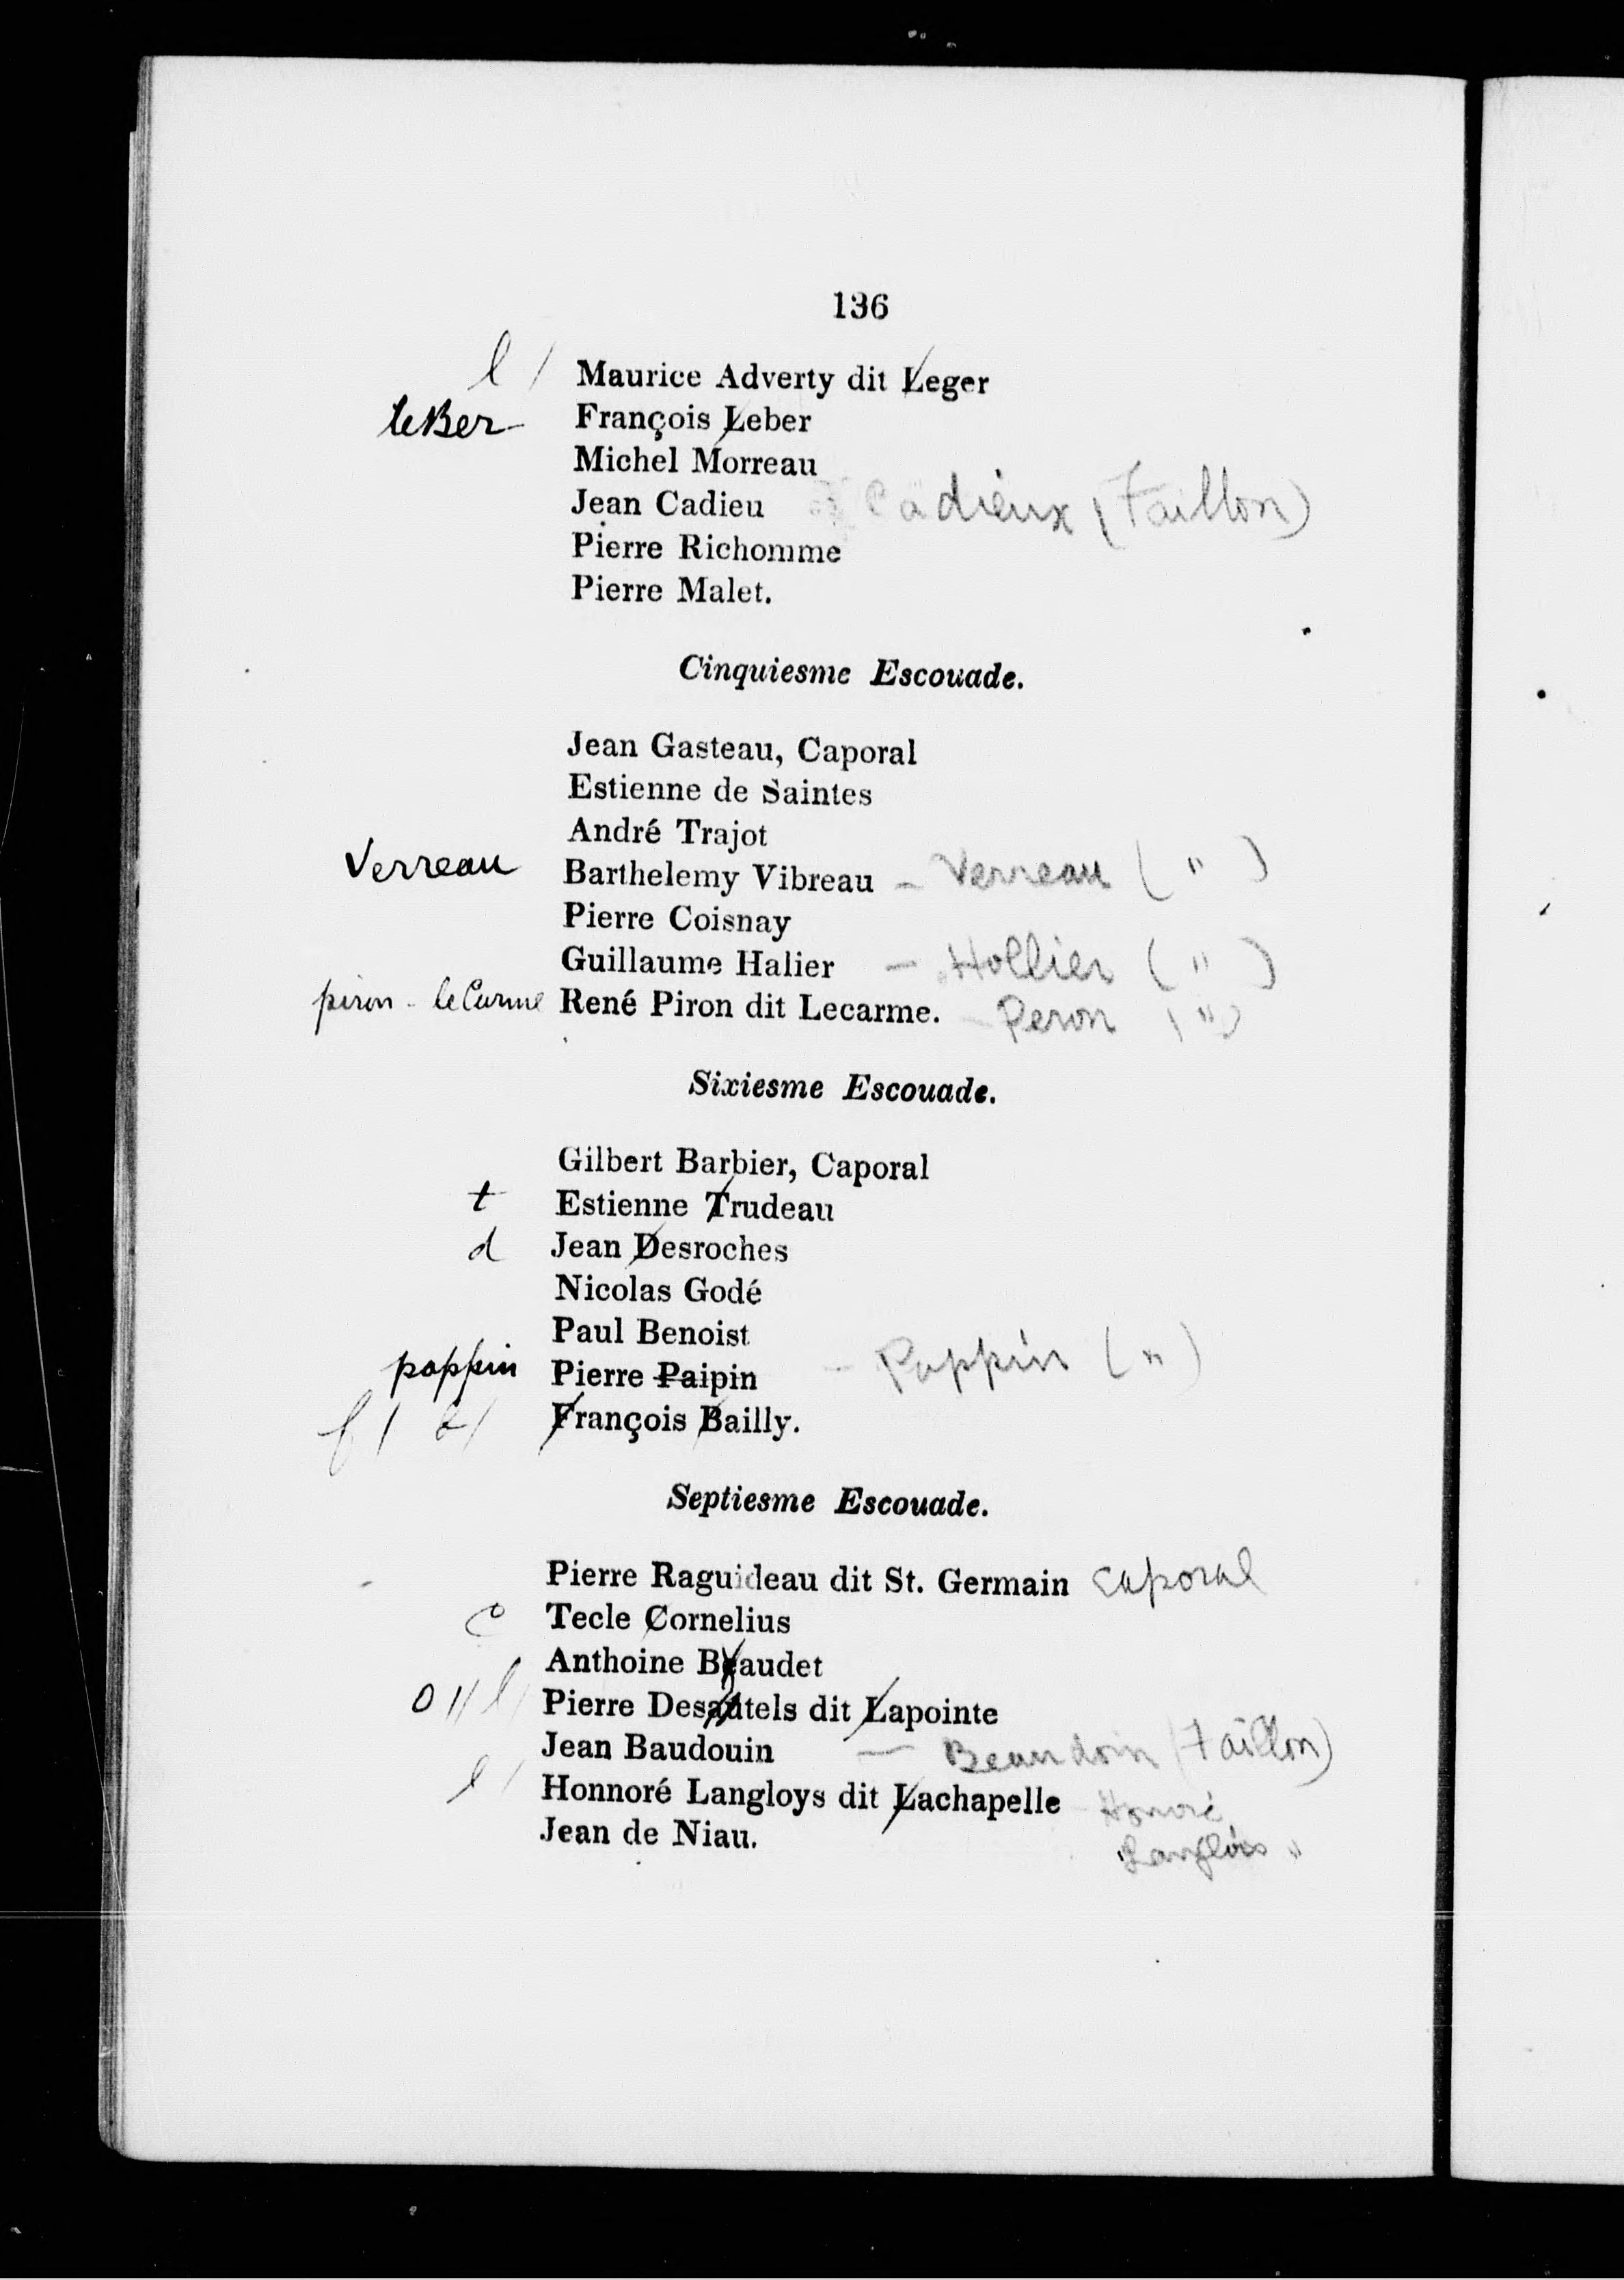 136
l / Maurice Adverty dit Leger
leBer François Leber
Michel Morreau
Jean Cadieu Cadieux (Faillon)
Pierre Richomme
Pierre Malet.
Cinquiesme Escouade.
Jean Gasteau, Caporal
Estienne de Saintes
André Trajot
Verreau Barthelemy Vibreau – Verreau ( " )
Pierre Coisnay
Guillaume Halier – Hollier ( " )
piron - leCarme René Piron dit Lecarme. – Peron ( " )
Sixiesme Escouade.
Gilbert Barbier, Caporal
t Estienne Trudeau
d Jean Desroches
Nicolas Godé
Paul Benoist
pappin Pierre Paipin – Pappin ( " )
f / b / François Bailly.
Septiesme Escouade.
Pierre Raguideau dit St. Germain caporal
c Tecle Cornelius
Anthoine Beaudet
o // l / Pierre Desautels dit Lapointe
Jean Baudouin – Beaudoin (Faillon)
l / Honnoré Langloys dit Lachapelle – Honoré
Jean de Niau. Langlois "